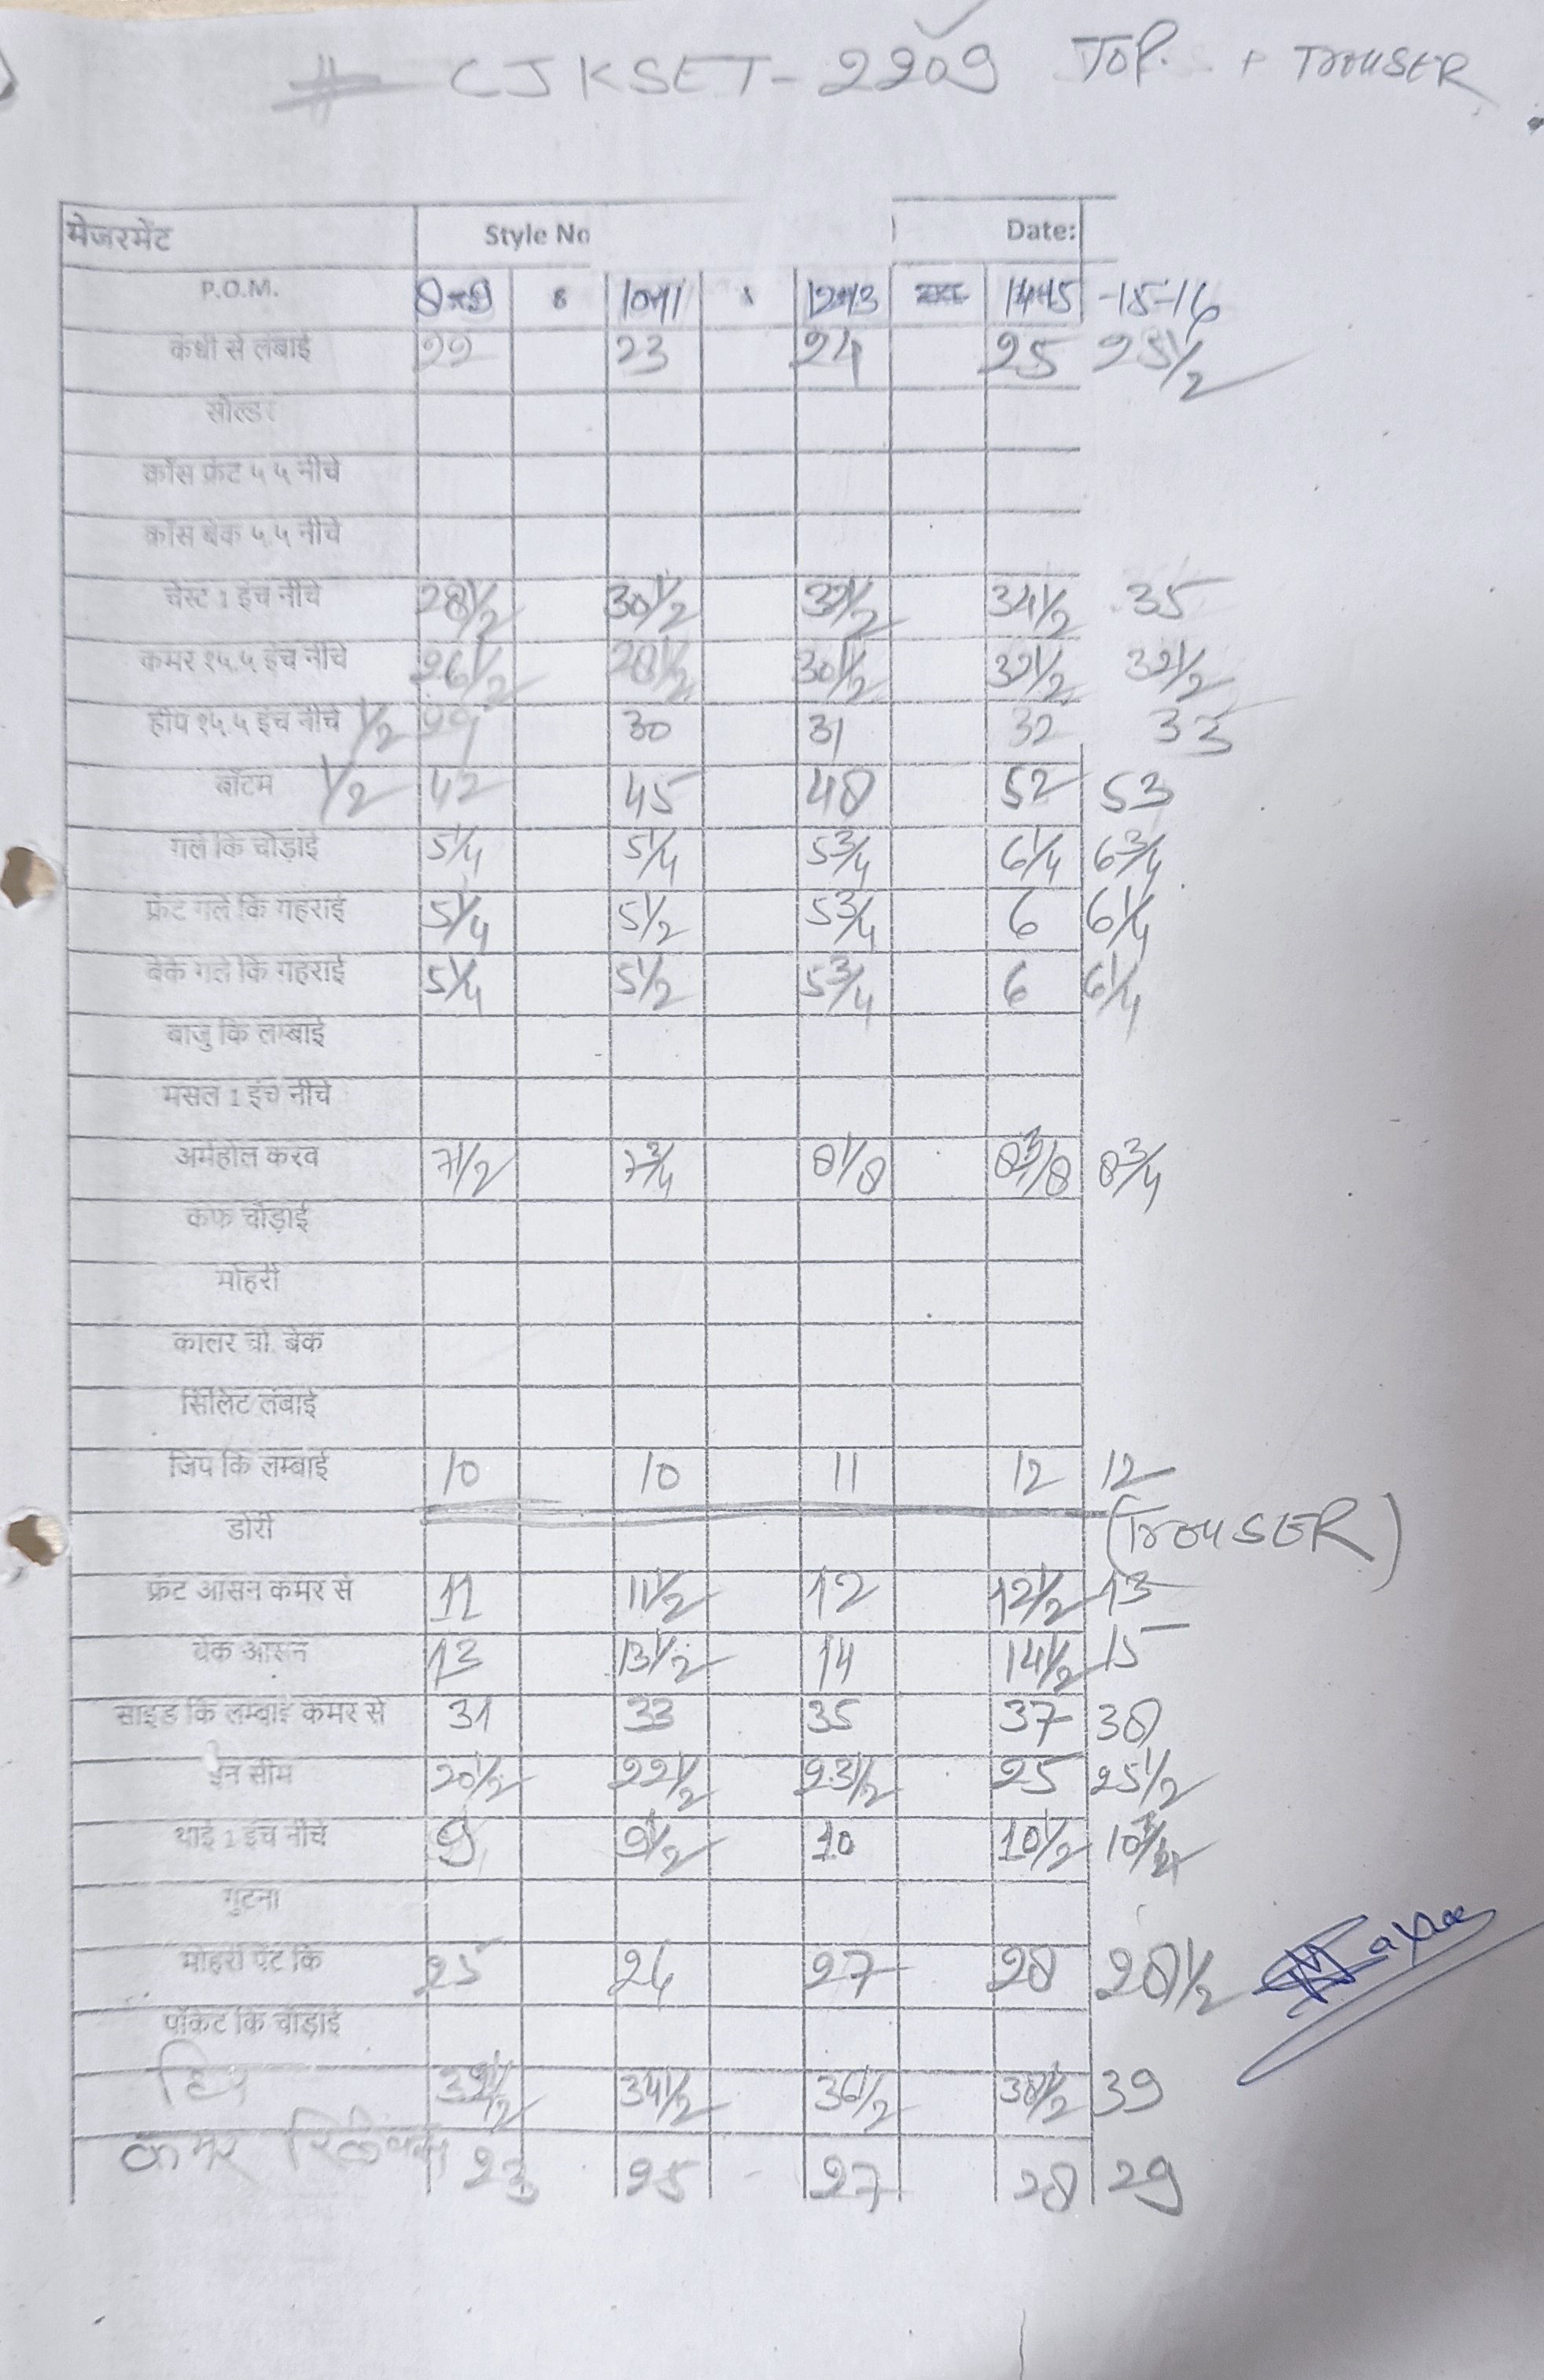 # CJKSET-2209 TOP. + TROUSER
मेजरमेंट Style No Date:
P.O.M. 8-9 10-11 12-13 14-15 -15-16
कंधी से लंबाई 22 23 24 25 25 1/2
सोल्डर
क्रॉस फ्रंट ५ ५ नीचे
क्रॉस बेक ५.५ नीचे
चेस्ट 1 इंच नीचे 28 1/2 30 1/2 32 1/2 34 1/2 35
कमर १५.५ इंच नीचे 26 1/2 28 1/2 30 1/2 32 1/2 32 1/2
हीप १५.५ इंच नीचे 1/2 29 30 31 32 33
बॉटम 1/2 42 45 48 52 53
गले कि चौड़ाई 5 1/4 5 1/4 5 3/4 6 1/4 6 3/4
फ्रंट गले कि गहराई 5 1/4 5 1/2 5 3/4 6 6 1/4
बेक गले कि गहराई 5 1/4 5 1/2 5 3/4 6 6 1/4
बाजु कि लम्बाई
मसल 1 इंच नीचे
अर्महोल करव 7 1/2 7 3/4 8 1/8 8 3/8 8 3/4
कफ चौड़ाई
मोहरी
कालर चौ. बेक
सिलिट लंबाई
जिप कि लम्बाई 10 10 11 12 12
डोरी (TROUSER)
फ्रंट आसन कमर से 11 11 1/2 12 12 1/2 13
बेक आसन 13 13 1/2 14 14 1/2 15
साइड कि लम्बाई कमर से 31 33 35 37 38
ईन सीम 20 1/2 22 1/2 23 1/2 25 25 1/2
थाई 1 इंच नीचे 9 9 1/2 10 10 1/2 10
गुटना
मोहरी पेंट कि 25 26 27 28 28 1/2
पॉकेट कि चौड़ाई
हिप 32 1/2 34 1/2 36 1/2 38 1/2 39
कमर रिलेक्स 23 25 27 28 29